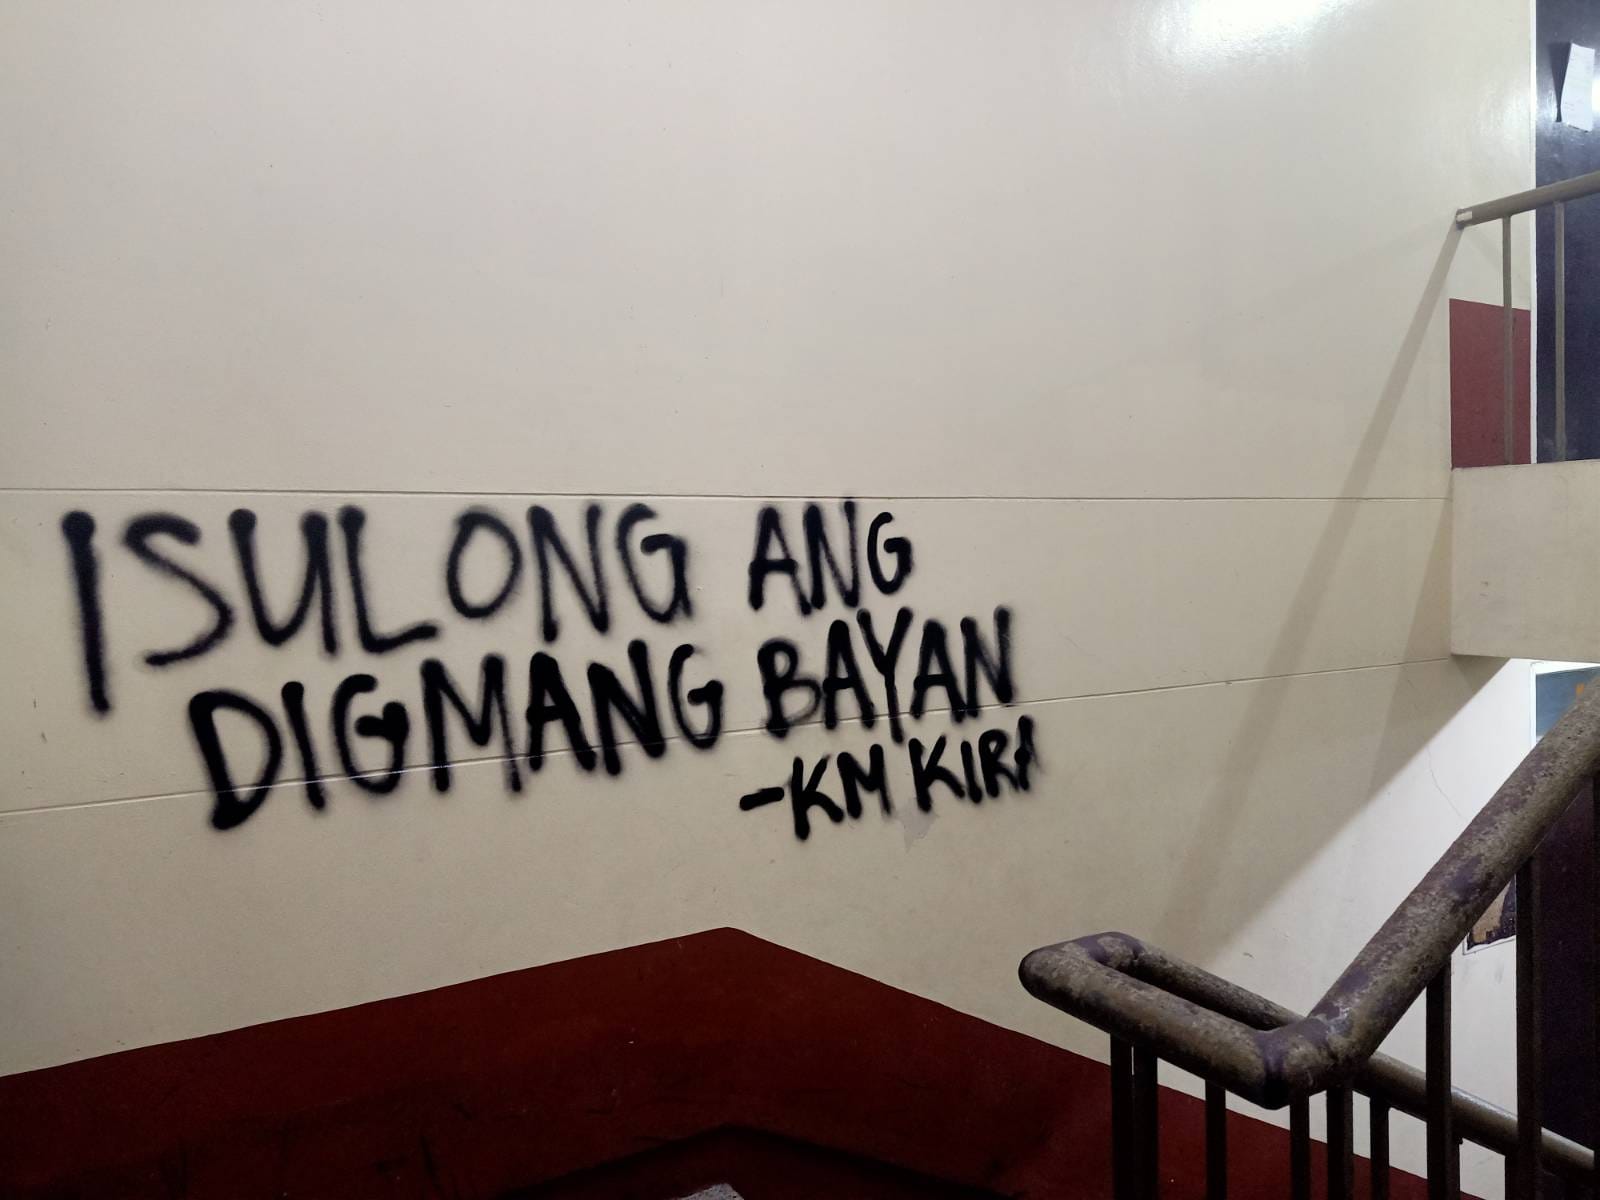 ISULONG ANG
DIGMANG BAYAN
-KM KIRA